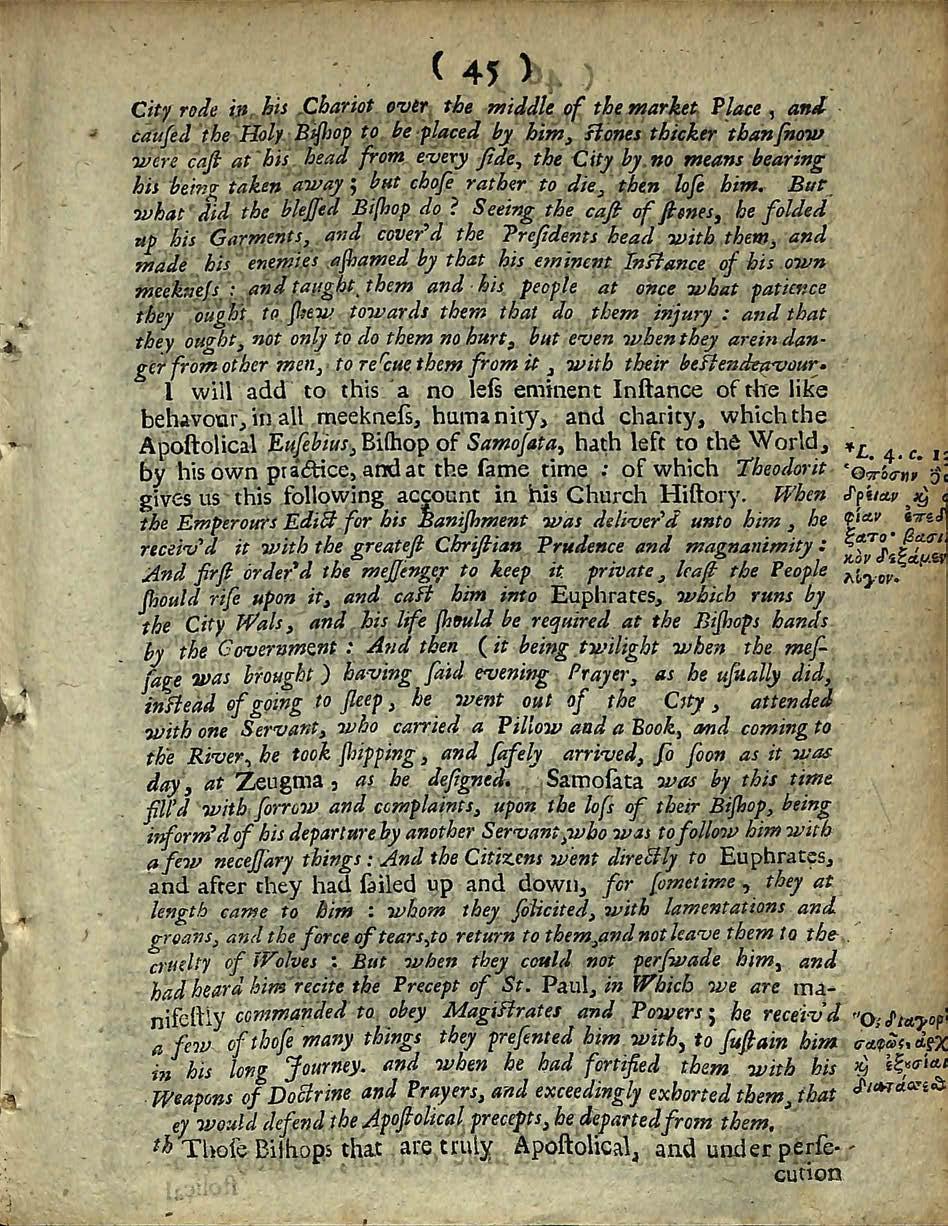 ( 45 )
City rode in his Chariot over the middle of the market Place, and
cauſed the Holy Biſhop to be placed by him, ſtones thicker than ſnow
were caſt at his head from every ſide, the City by no means bearing
his being taken away; but choſe rather to die, then loſe him. But
what did the bleſſed Biſhop do? Seeing the caſt of ſtones, he folded
up his Garments, and cover'd the Preſidents head with them, and
made his enemies aſhamed by that his eminent Inſtance of his own
meekneſs: and taught them and his people at once what patience
they ought to ſhew towards them that do them injury: and that
they ought, not only to do them no hurt, but even when they arein dan-
ger from other men, to reſcue them from it, with their beſt endeavour.
I will add to this a no leſs eminent Inſtance of the like
behavour, in all meekneſs, humanity, and charity, which the
Apoſtolical Euſebius, Biſhop of Samoſata, hath left to the World,
by his own practice, and at the ſame time: of which Theodorit
gives us this following account in his Church Hiſtory. When
the Emperours Edict for his Baniſhment was deliver'd unto him, he
receiv'd it with the greateſt Chriſtian Prudence and magnanimity:
And firſt order'd the meſſenger to keep it private, leaſt the People
ſhould riſe upon it, and caſt him into Euphrates, which runs by
the City Wals, and his life ſhould be required at the Biſhops hands
by the Government: And then (it being twilight when the meſ-
ſage was brought) having ſaid evening Prayer, as he uſually did,
inſtead of going to ſleep, he went out of the City, attended
with one Servant, who carried a Pillow and a Book, and coming to
the River, he took ſhipping, and ſafely arrived, ſo ſoon as it was
day, at Zeugma, as he deſigned. Samoſata was by this time
fill'd with ſorrow and complaints, upon the loſs of their Biſhop, being
inform'd of his departure by another Servant, who was to follow him with
a few neceſſary things: And the Citizens went directly to Euphrates,
and after they had ſailed up and down, for ſometime, they at
length came to him: whom they ſolicited, with lamentations and
groans, and the force of tears, to return to them, and not leave them to the
cruelty of Wolves: But when they could not perſwade him, and
had heard him recite the Precept of St. Paul, in Which we are ma-
nifeſtly commanded to obey Magiſtrates and Powers; he receiv'd
a few of thoſe many things they preſented him with, to ſuſtain him
in his long Journey. and when he had fortified them with his
Weapons of Doctrine and Prayers, and exceedingly exhorted them, that
ey would defend the Apoſtolical precepts, he departed from them.
th Thoſe Biſhops that are truly Apoſtolical, and under perſe-
cution
*L. 4. c.
Ὁπόσην
δρείαν
φίαν
ξατο· βασι
κὸν δεξάμεν
λόγον.